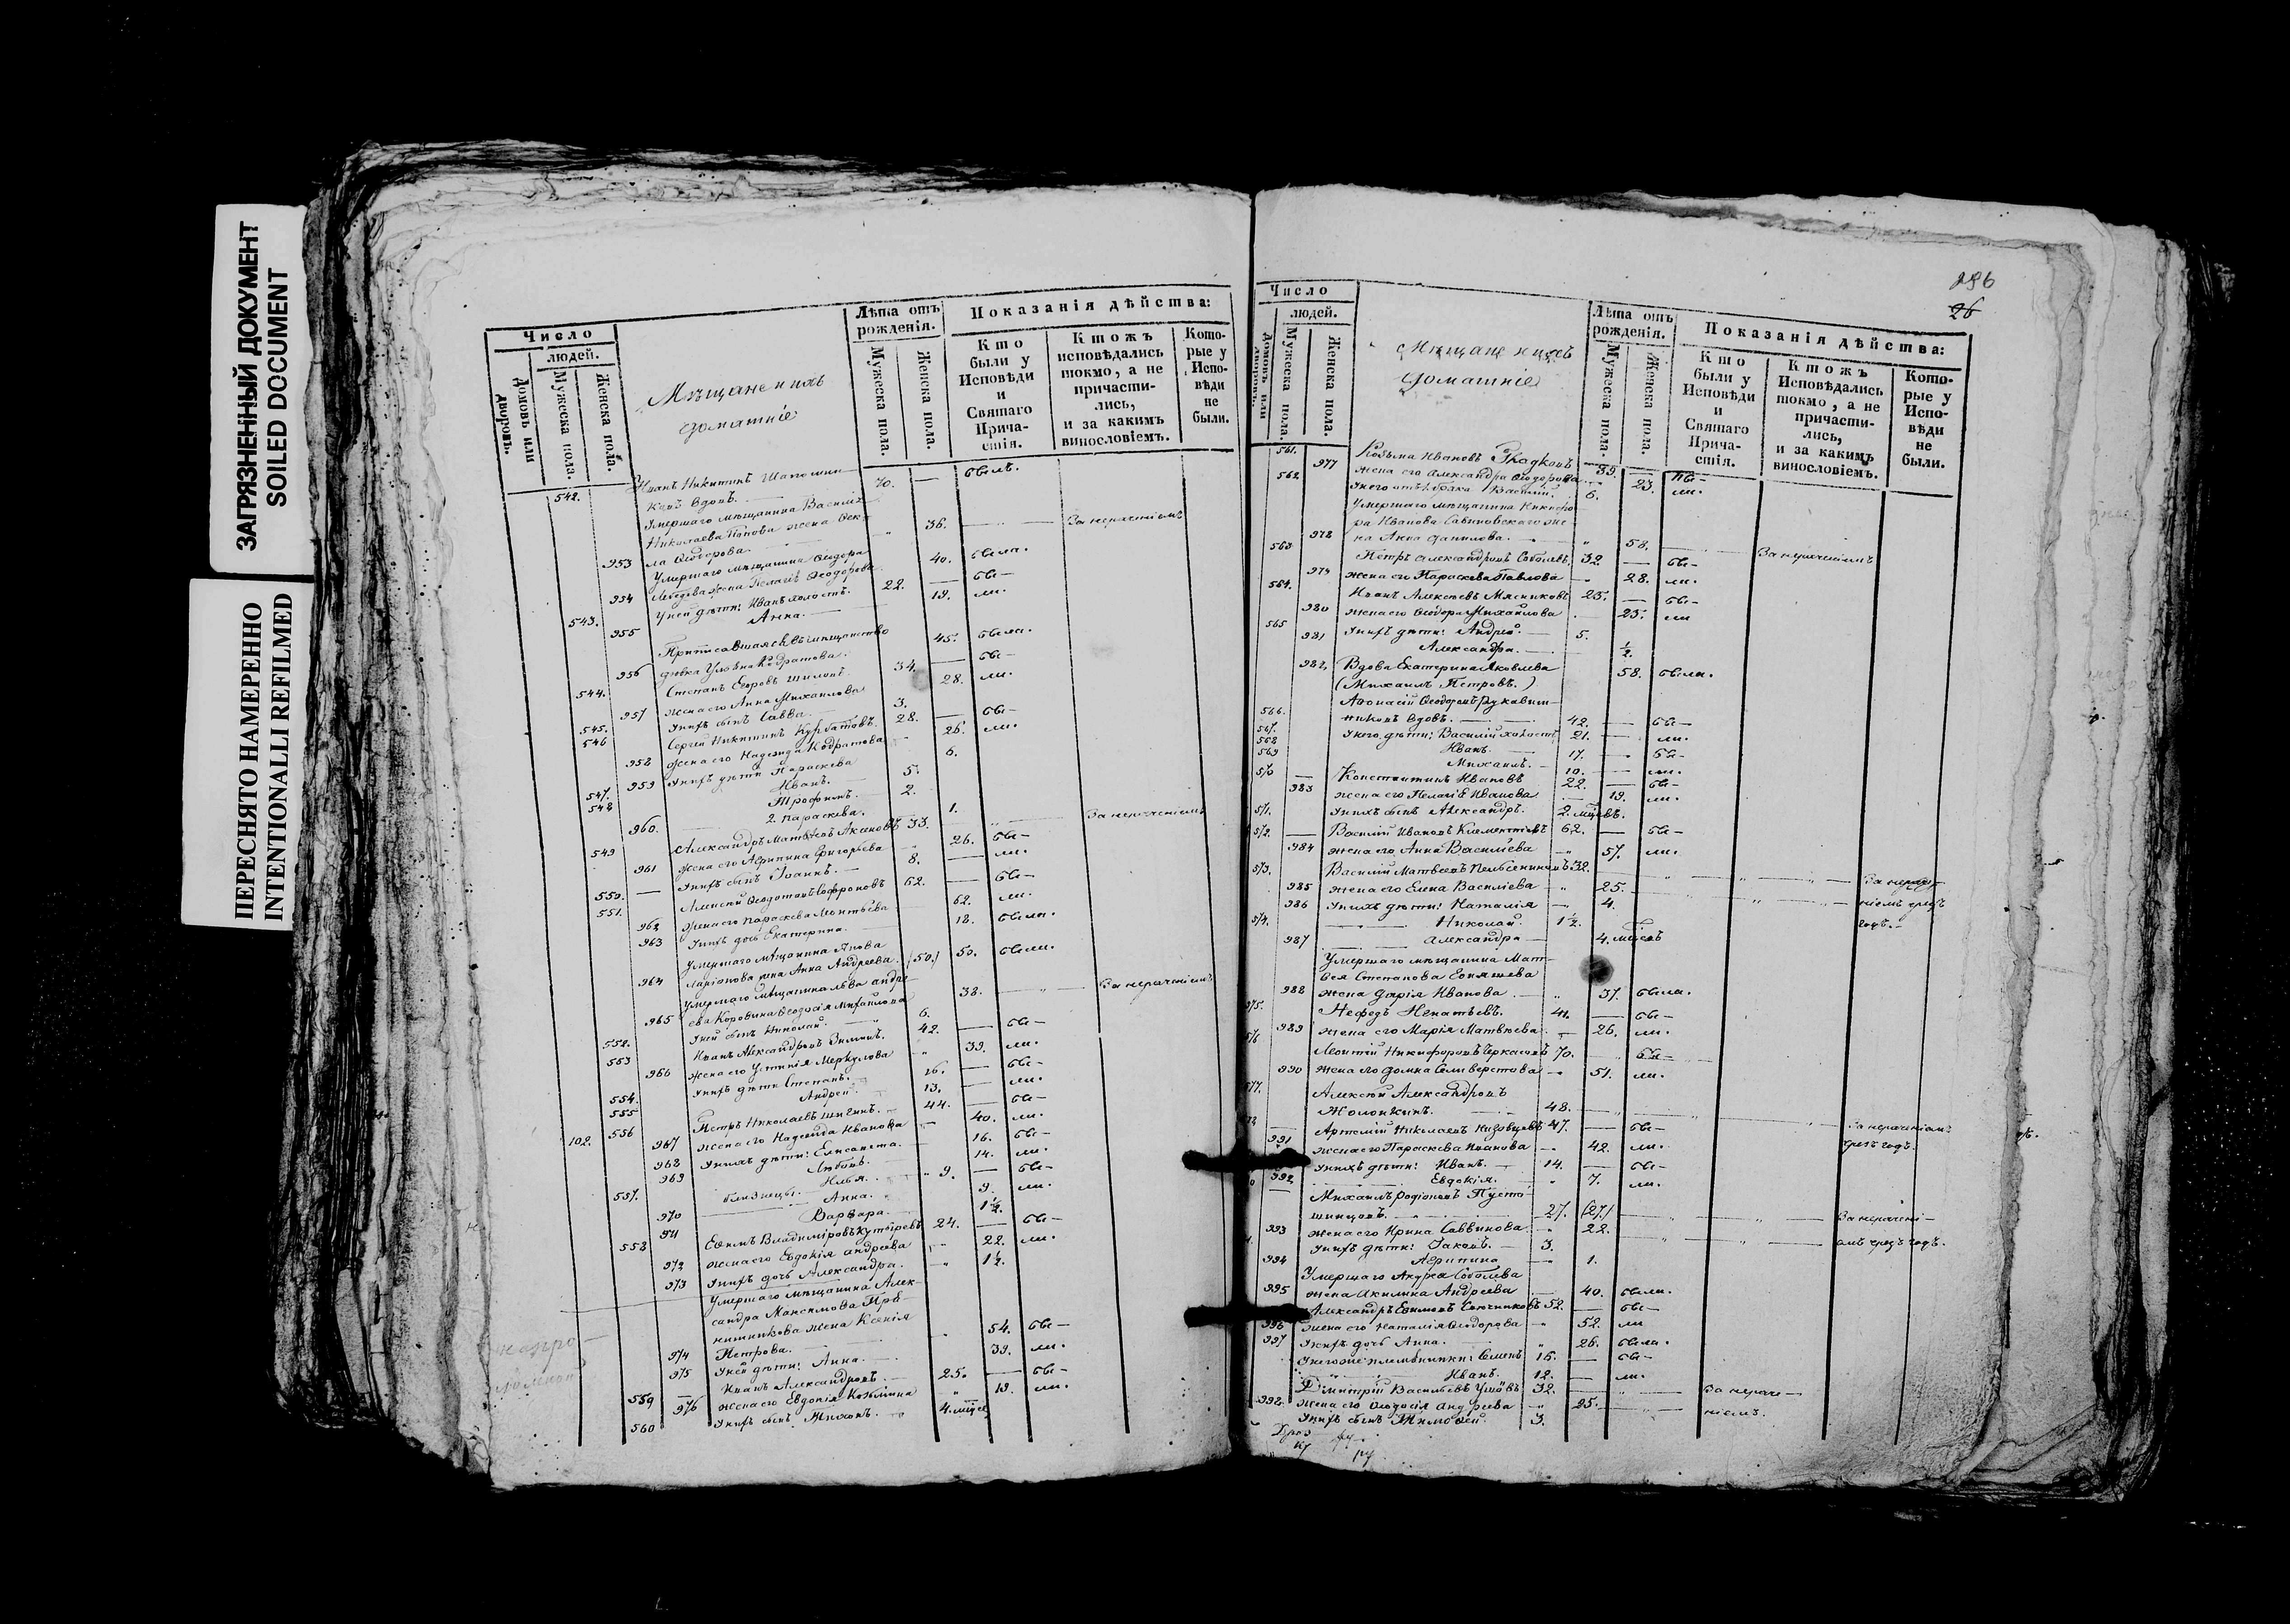 ЗАГРЯЗНЕННЫЙ ДОКУМЕНТ
SOILED DOCUMENT
ПЕРЕСНЯТО НАМЕРЕННО
INTENTIONALLI REFILMED
Число
людей.
Домовъ или дворовъ.
Мужеска пола.
Женска пола.
Мѣщане и ихъ
домашніе
Лѣта отъ рожденія.
Мужеска пола.
Женска пола.
Показанія дѣйства:
Кто были у Исповѣди и Святаго Причастія.
Ктожъ исповѣдались токмо, а не причастились, и за какимъ винословіемъ.
Которые у Исповѣди не были.
542. Иванъ Никитинъ
вдовъ. 70. — былъ.
Умершаго мѣщанина Василія
Николаева Попова жена Фек-
953 ла Ѳедорова. 36. За нераченіемъ
Умершаго мѣщанина Ѳедора
954 жена Пелагія Ѳеодорова 40. была.
543. У ней дѣти: Иванъ холостъ. 22. — бы-
955 Анна. 19. ли.
Приписавшаяся въ мѣщанство
956 дѣвка 45. была.
544. Степанъ Егоровъ Шиловъ. 34. — бы-
957 жена его Анна Михайлова 28. ли.
545. У нихъ сынъ Савва. 3.
546 Сергей Никитинъ Курбатовъ. 28. — бы-
958 жена его Надежда 26. ли.
959 У нихъ дѣти Параскева 6.
547. Иванъ. 5.
548 Трофимъ. 2.
960. 2. Параскева. 1.
549 Александръ Матвѣевъ Аксеновъ 33. За нераченіемъ
961 жена его Агрипина Григорьева 26. бы-
550. У нихъ сынъ Іоаннъ. 8. — ли.
551. Алексѣй Софроновъ 62. — бы-
962 жена его Параскева Леонтьева 62. ли.
963 У нихъ дочь Екатерина. 18. была.
Умершаго мѣщанина
964 Ларіонова жена Анна Андреева. (50.) 50. были.
Умершаго мѣщанина Льва Андре-
965 ева Коровина Ѳеодосія Михайлова 38. За нераченіемъ
552. У ней сынъ Николай. 6.
553 Иванъ Александровъ Зиминъ. 42. — бы-
966 жена его Устинія Меркулова 39. ли.
554. У нихъ дѣти Степанъ. 16. — бы-
555 Андрей. 13. — ли.
102. 556 Петръ Николаевъ 44. — бы-
967 жена его Надежда Иванова 40. ли.
968 У нихъ дѣти: Елисавета. 16. бы-
969 Любовь. 14. ли.
557. близнецы. Илья. 9. — бы-
970 Анна. 9. ли.
971 Варвара. 1½.
558 Ефимъ Владиміровъ 24. — бы-
972 жена его Евдокія Андреева 22. ли.
973 У нихъ дочь Александра. 1½.
Умершаго мѣщанина Алек-
сандра Максимова
жена Ксенія
974 Петрова. 54. бы-
975 У ней дѣти: Анна. 39. ли.
559 Иванъ Александровъ. 25. — бы-
976 жена его Евдокія Козьмина 19. ли.
560 У нихъ сынъ Тихонъ. 4. мѣсяц
286
26
Число
людей.
Домовъ или дворовъ.
Мужеска пола.
Женска пола.
Мѣщане и ихъ
домашніе
Лѣта отъ рожденія.
Мужеска пола.
Женска пола.
Показанія дѣйства:
Кто были у Исповѣди и Святаго Причастія.
Ктожъ Исповѣдались токмо, а не причастились, и за какимъ винословіемъ.
Которые у Исповѣди не были.
561. Козьма Ивановъ Гладковъ 39. бы-
977 жена его Александра Ѳедорова 23. ли.
562 У него отъ 1. брака Василій. 6.
Умершаго мѣщанина Никифо-
ра Иванова Савиновскаго же-
978 на Анна Данилова. 58. За нераченіемъ
563 Петръ Александровъ Соболевъ 32. — бы-
979 жена его Параскева Павлова 28. ли.
564. Иванъ Алексѣевъ Мясниковъ 25. — бы-
980 жена его Ѳеодора Михайлова 25. ли
565 У нихъ дѣти: Андрей. 5.
981 Александра. ½.
982. Вдова Екатерина Яковлева 58. была.
(Михаилъ Петровъ.)
566. Афонасій Ѳеодоровъ Рукавиш-
никовъ вдовъ. 42. — бы-
567. У него дѣти: Василій холостъ 21. — ли.
568 Иванъ. 17. — бы-
569 Михаилъ. 10. — ли.
570 Константинъ Ивановъ 22. — бы-
983 жена его Пелагія Иванова 19. ли.
571. У нихъ сынъ Александръ. 2. мѣсяцъ.
572. Василій Ивановъ Клементіевъ 62. — бы-
984 жена его Анна Васильева 57. ли.
573. Василій Матвеевъ 32. За нераче-
985 жена его Елена Васильева 25. ніемъ чрезъ
986 У нихъ дѣти: Наталія 4. годъ.
574. Николай. 1½.
987 Александра 4. мѣсяцъ
Умершаго мѣщанина Мат-
вея Степанова
988 жена Дарія Иванова. 37. была.
575. Нефедъ Игнатьевъ. 41. — бы-
989 жена его Марія Матвѣева 26. ли.
576 Леонтій Никифоровъ Черкасовъ 70. бы-
990 жена его Домна Селиверстова 51. ли.
577. Алексѣй Александровъ
Жолонкинъ. 48. За нераченіемъ
Артемій Николаевъ Низовцевъ 47. — бы- чрезъ годъ.
991 жена его Параскева Иванова 42. ли.
У нихъ дѣти: Иванъ. 14. — бы-
992 Евдокія. 7. ли.
Михаилъ Родіоновъ Пусто-
шинцовъ. 27. (27.) За нерачені-
993 жена его Ирина Саввинова. 22. емъ чрезъ годъ.
У нихъ дѣти: Іаковъ. 3.
994 Агрипина 1.
Умершаго Андрея Соболева
995 жена Акилина Андреева 40. были.
Александръ Ефимовъ 52. — бы-
996 жена его Наталія Ѳеодорова 52. ли
997 У нихъ дочь Анна. 26. была.
У него же племянники: Семенъ 15. — бы-
Иванъ. 12. — ли.
Дмитрій Васильевъ 32. За нераче-
998. жена его Ѳеодосія Андреева 25. ніемъ.
У нихъ сынъ Тимоѳей. 3.